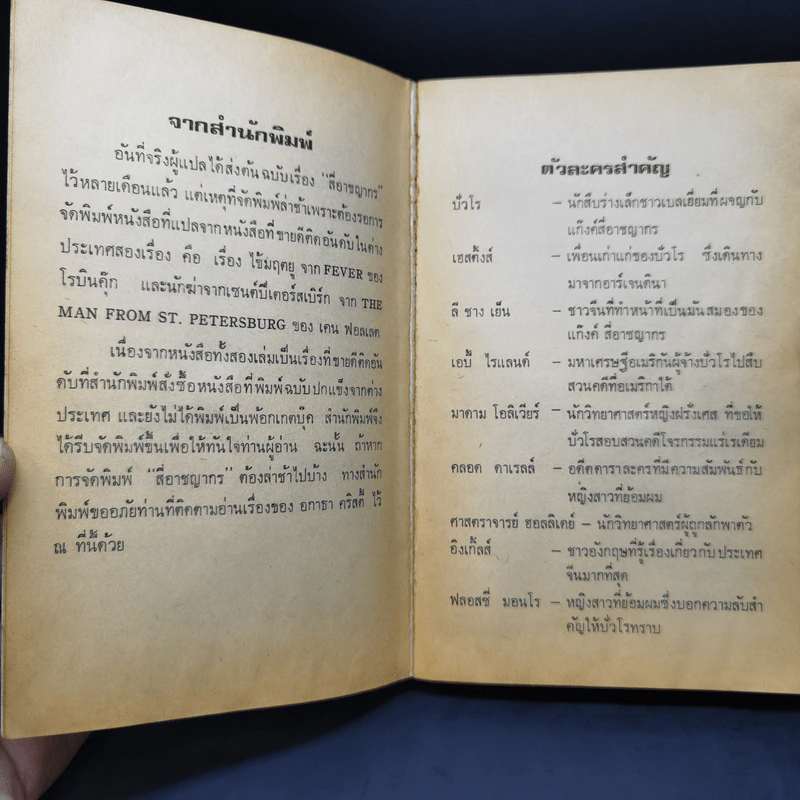 จากสำนักพิมพ์
อันที่จริงผู้แปลได้ส่งต้นฉบับเรื่อง "สี่อาชญากร"
ไว้หลายเดือนแล้ว แต่เหตุที่จัดพิมพ์ล่าช้าเพราะต้องรอการ
จัดพิมพ์หนังสือที่แปลจากหนังสือที่ขายดีติดอันดับในต่าง
ประเทศสองเรื่อง คือ เรื่อง ไข้มฤตยู จาก FEVER ของ
โรบินคุ๊ก และนักฆ่าจากเซนต์ปีเตอร์สเบิร์ก จาก THE
MAN FROM ST. PETERSBURG ของ เคน ฟอลเลต
เนื่องจากหนังสือทั้งสองเล่มเป็นเรื่องที่ขายดีติดอัน
ดับที่สำนักพิมพ์สั่งซื้อหนังสือที่พิมพ์ฉบับปกแข็งจากต่าง
ประเทศ และยังไม่ได้พิมพ์เป็นพ้อกเกตบุ๊ค สำนักพิมพ์จึง
ได้รีบจัดพิมพ์ขึ้นเพื่อให้ทันใจท่านผู้อ่าน ฉะนั้น ถ้าหาก
การจัดพิมพ์ "สี่อาชญากร" ต้องล่าช้าไปบ้าง ทางสำนัก
พิมพ์ขออภัยท่านที่ติดตามอ่านเรื่องของ อกาธา คริสตี้ ไว้
ณ ที่นี้ด้วย
ตัวละครสำคัญ
ปัวโร – นักสืบร่างเล็กชาวเบลเยี่ยมที่ผจญกับ
แก๊งค์สี่อาชญากร
เฮสติ้งส์ – เพื่อนเก่าแก่ของปัวโร ซึ่งเดินทาง
มาจากอาร์เจนตินา
ลี ชาง เย็น – ชาวจีนที่ทำหน้าที่เป็นมันสมองของ
แก๊งค์ สี่อาชญากร
เอบี้ ไรแลนด์ – มหาเศรษฐีอเมริกันผู้จ้างปัวโรไปสืบ
สวนคดีที่อเมริกาใต้
มาดาม โอลิเวียร์ – นักวิทยาศาสตร์หญิงฝรั่งเศส ที่ขอให้
ปัวโรสอบสวนคดีโจรกรรมแร่เรเดียม
คลอด ดาเรลล์ – อดีตดาราละครที่มีความสัมพันธ์กับ
หญิงสาวที่ย้อมผม
ศาสตราจารย์ ฮอลลิเดย์ – นักวิทยาศาสตร์ผู้ถูกลักพาตัว
อิงเกิ้ลส์ – ชาวอังกฤษที่รู้เรื่องเกี่ยวกับประเทศ
จีนมากที่สุด
ฟลอสซี่ มอนโร – หญิงสาวที่ย้อมผมซึ่งบอกความลับสำ
คัญให้ปัวโรทราบ